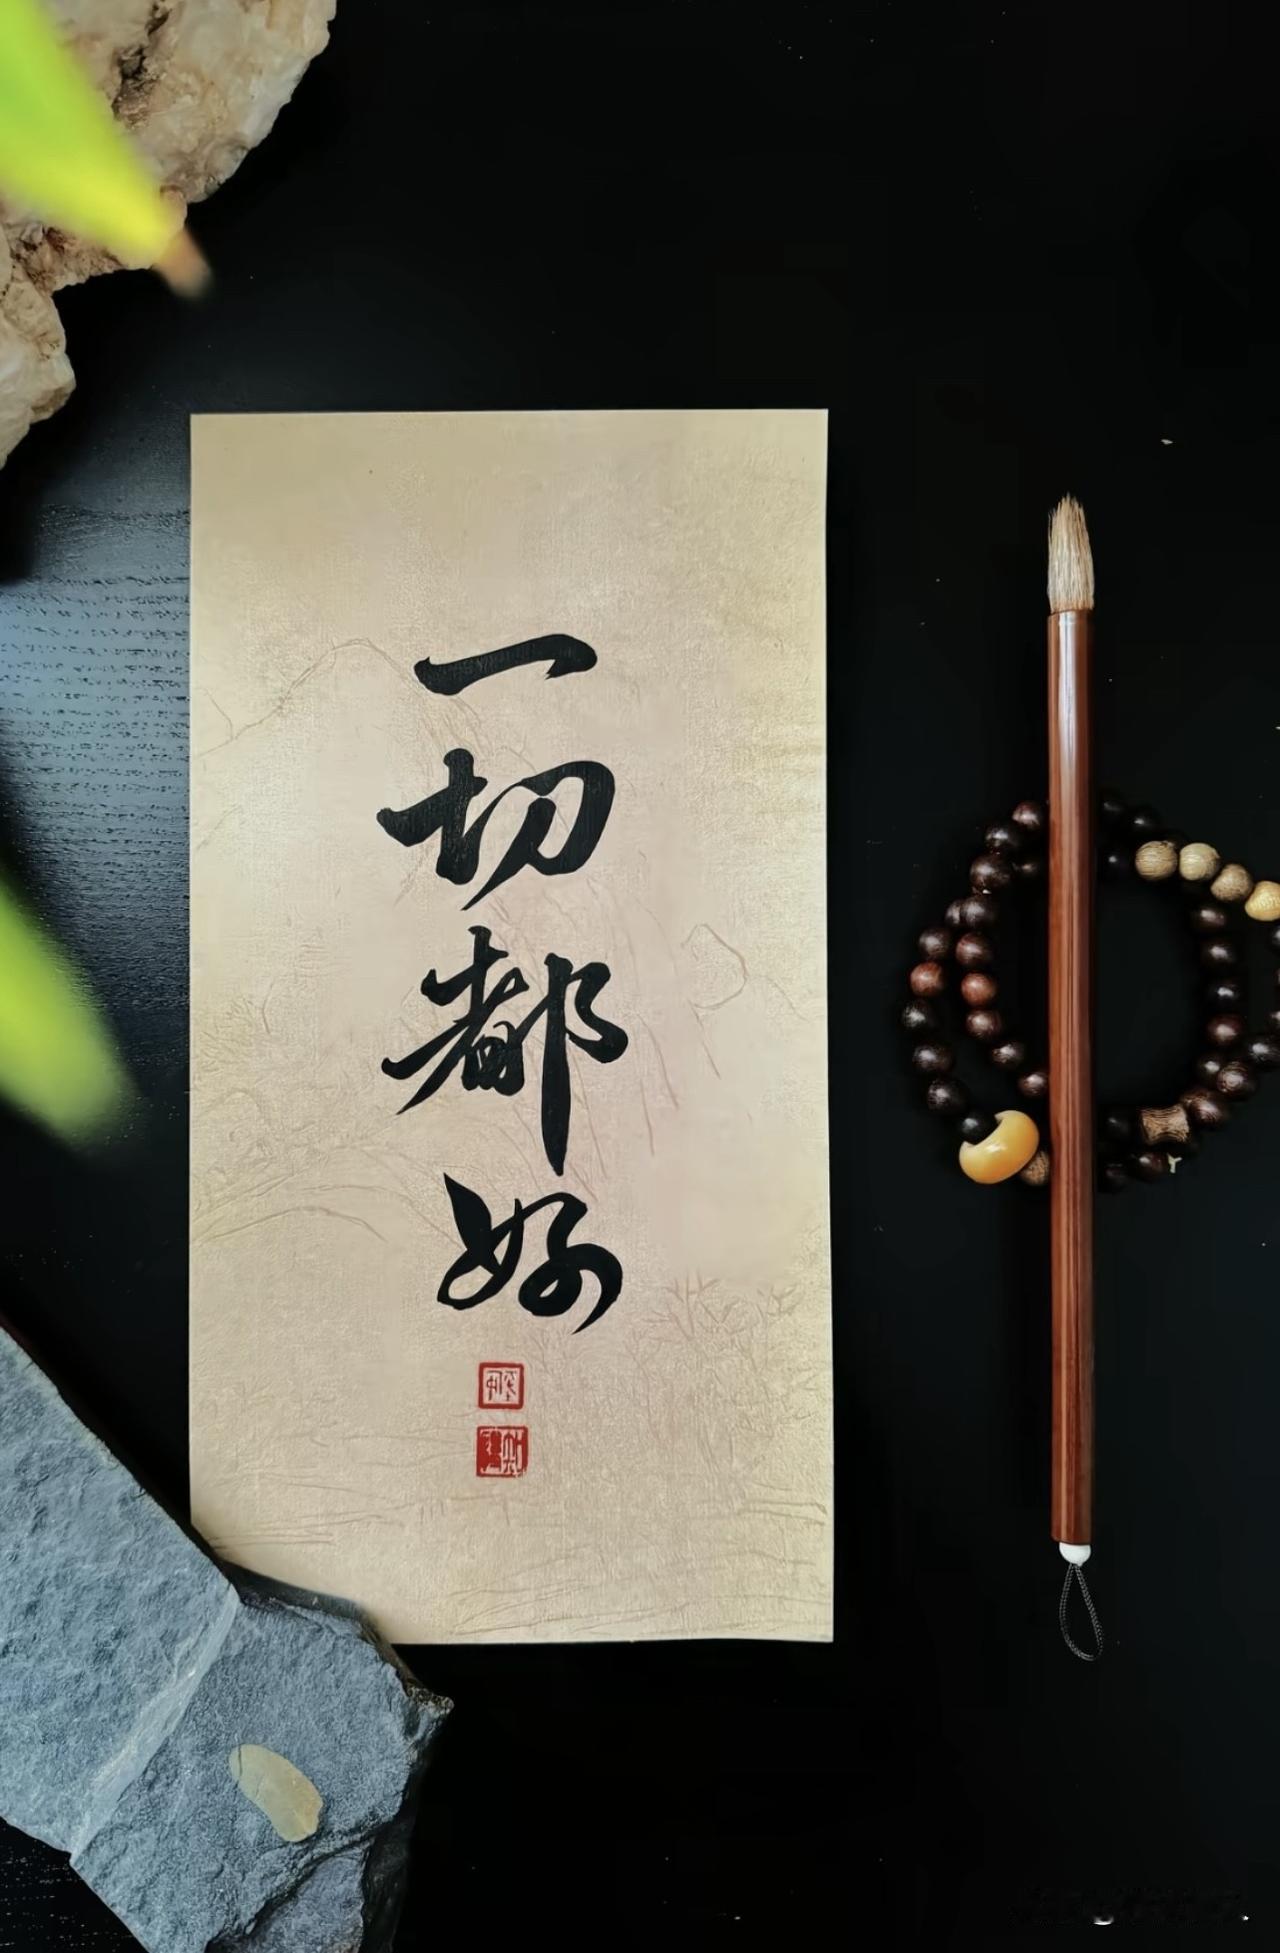 一切都好